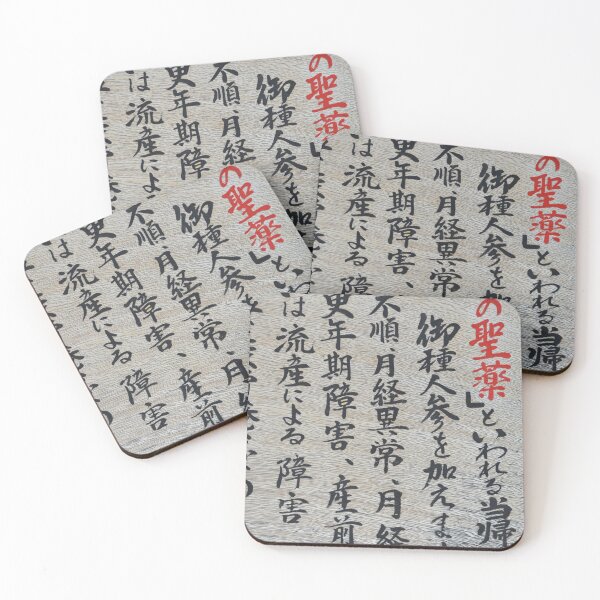 の聖薬
御種人参を加
不順、月経
更年期障
は流産によ
の聖薬」といわれる当帰
御種人参を加
不順、月経異常
更年期障害、
は流産による障
の聖薬」とい
御種人参を
不順、月経異常、月
更年期障害、産前
は流産による障害
の聖薬」といわれる当帰
御種人参を加えま
不順、月経異常、月経
更年期障害、産前
は流産による障害